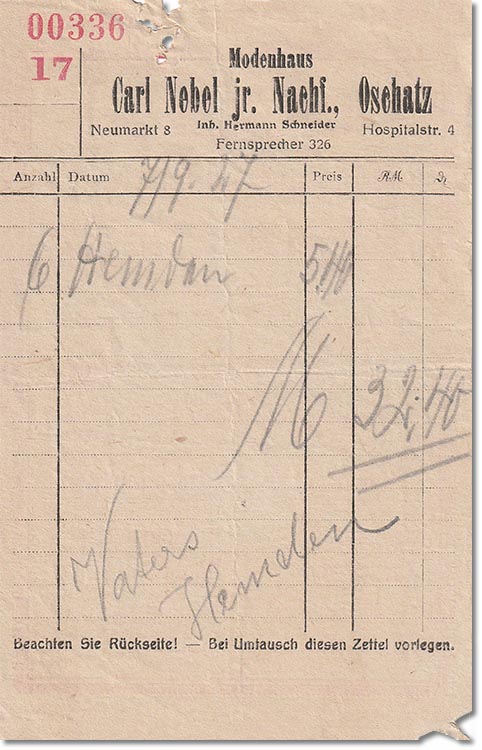 00336
17
Modenhaus
Carl Nebel jr. Nachf., Oschatz
Neumarkt 8 Inh. Hermann Schneider Hospitalstr. 4
Fernsprecher 326
Anzahl Datum 7/9.27 Preis RM ₰
6 Hemden 5.40
M 32,40
Vaters
Hemden
Beachten Sie Rückseite! — Bei Umtausch diesen Zettel vorlegen.